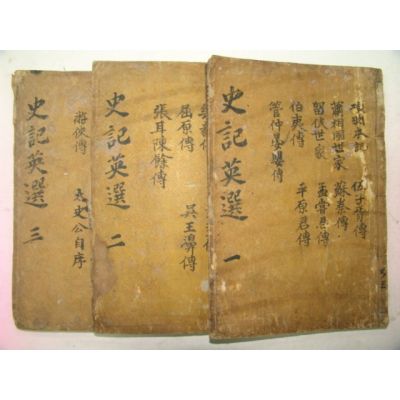 史記英選 一
項羽本紀 伍子胥傳
蕭相國世家 蘇秦傳
留侯世家 孟嘗君傳
伯夷傳 平原君傳
管仲晏嬰傳
史記英選 二
屈原傳 吳王濞傳
張耳陳餘傳
史記英選 三
游俠傳 太史公自序